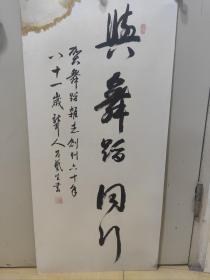 與舞蹈同行
賀舞蹈雜志創刊六十年
八十一歲聾人